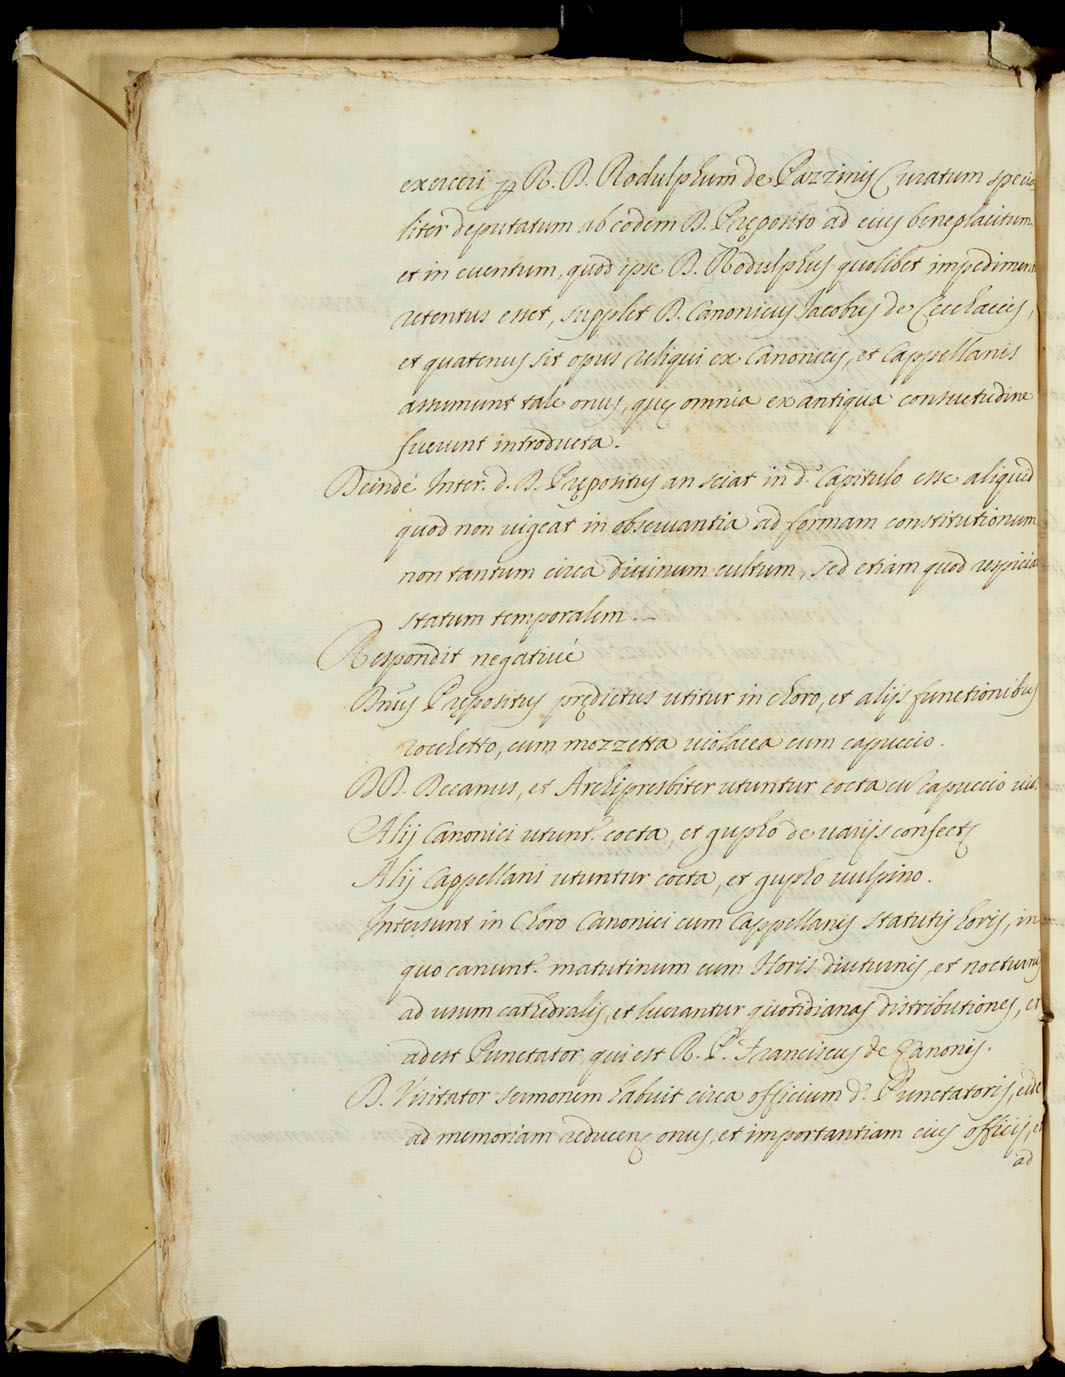 exerceri p R. D. Rodulphum de Pazzinis Curatum specia
liter deputatum ab eodem D. Pręposito ad eius beneplacitum
et in euentum, quod ipse D. Rodulphus quolibet impediment
retentus esset, supplet D. Canonicus Jacobus de
et quatenus sit opus reliqui ex Canonicis, et Cappellanis
assumunt tale onus, quę omnia ex antiqua consuetudine
fuerunt introducta.
Deindè Inter. d. D. Prępositus an sciat in d.º Capitulo esse aliquid
quod non uigeat in obseruantia ad formam constitutionum
non tantum circa diuinum cultum, sed etiam quod respicia
statum temporalem._
Respondit negatiuè
Dnus Prępositus prędictus utitur in choro, et alijs functionibus
rocchetto, cum mozzetta uiolacea cum capuccio.
DD. Decanus, et Archipresbiter utuntur cocta cũ capuccio uiol.
Alij Canonici utunt.r cocta, et gupho de uarijs confect
Alij Cappellani utuntur cocta, et gupho uulpino.
Intersunt in Choro Canonici cum Cappellanis statutis horis, in
quo canunt.r matutinum cum Horis diuturnis, et nocturnis
ad usum cathedralis, et lucrantur quotidianas distributiones, et
adest Punctator, qui est R. P. Franciscus de Zanonis.
D. Visitator sermonem habuit circa officium d.i Punctatoris, eide
ad memoriam reducens onus, et importantiam eius officij, et
ad